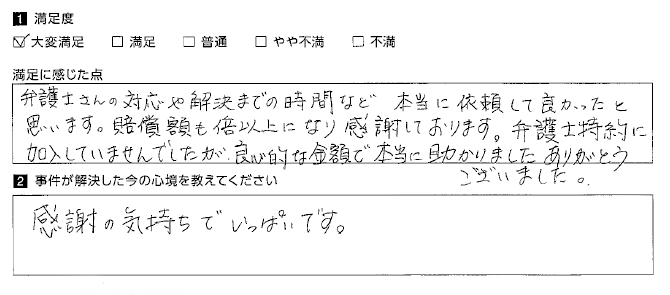 1 満足度
☑ 大変満足 □ 満足 □ 普通 □ やや不満 □ 不満
満足に感じた点
弁護士さんの対応や解決までの時間など 本当に依頼して良かったと
思います。賠償額も倍以上になり感謝しております。弁護士特約に
加入していませんでしたが、良心的な金額で本当に助かりました ありがとう
ございました。
2 事件が解決した今の心境を教えてください
感謝の気持ちでいっぱいです。